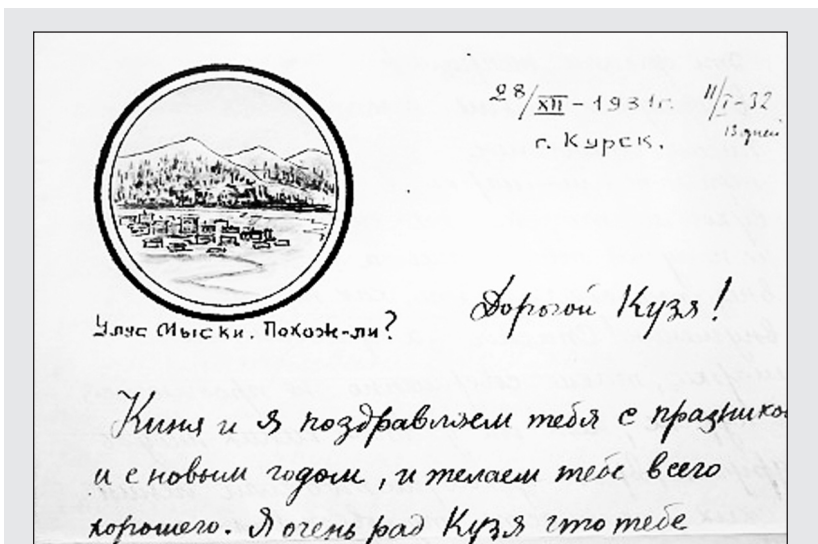 28/XII - 1931г. 11/I-32
13 дней
г. Курск.
Улус Мыски. Похож-ли?
Дорогой Кузя!
Киня и я поздравляем тебя с праздником
и с новым годом, и желаем тебе всего
хорошего. Я очень рад Кузя что тебе